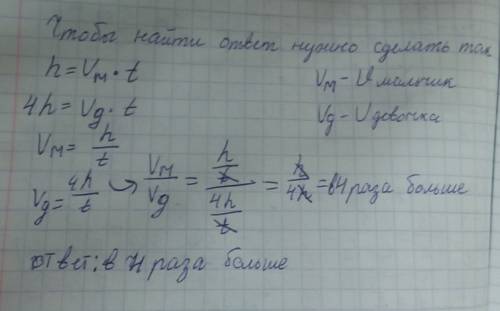 Чтобы найти ответ нужно сделать так
h = Vм · t
Vм – V мальчик
4h = Vg · t
Vg – V девочка
Vм = h/t
Vg = 4h/t → Vм/Vg = (h/t)/(4h/t) = h/4h = в 4 раза больше
ответ: в 4 раза больше